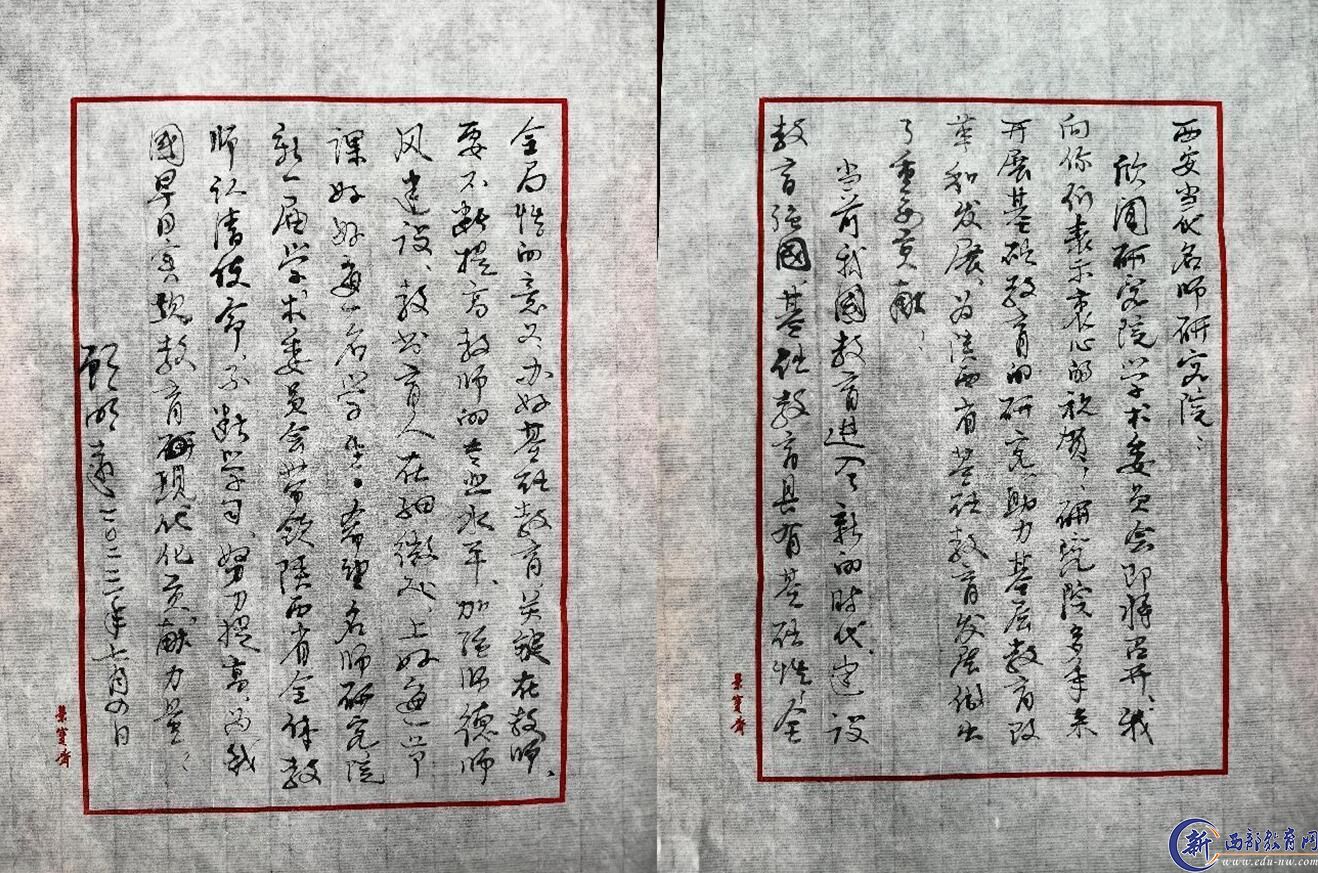 西安当代名师研究院：
欣闻研究院学术委员会即将召开，我
向你们表示衷心的祝贺，研究院多年来
开展基础教育的研究，助力基层教育改
革和发展，为陕西省基础教育发展做出
了重要贡献！
当前我國教育进入新的时代，建设
教育强國，基础教育具有基础性、全
全局性的意义，办好基础教育关键在教师，
要不断提高教师的专业水平，加强师德师
风建设，教书育人在细微处，上好每一节
课，好好每一名学生。希望名师研究院
新一届学术委员会带领陕西省全体教
师认清使命，不断学习，努力提高，为我
國早日实现教育现代化贡献力量！
顾明远 二〇二二年七月四日
荣宝斋
荣宝斋
新 西部教育网
www.edu-nw.com